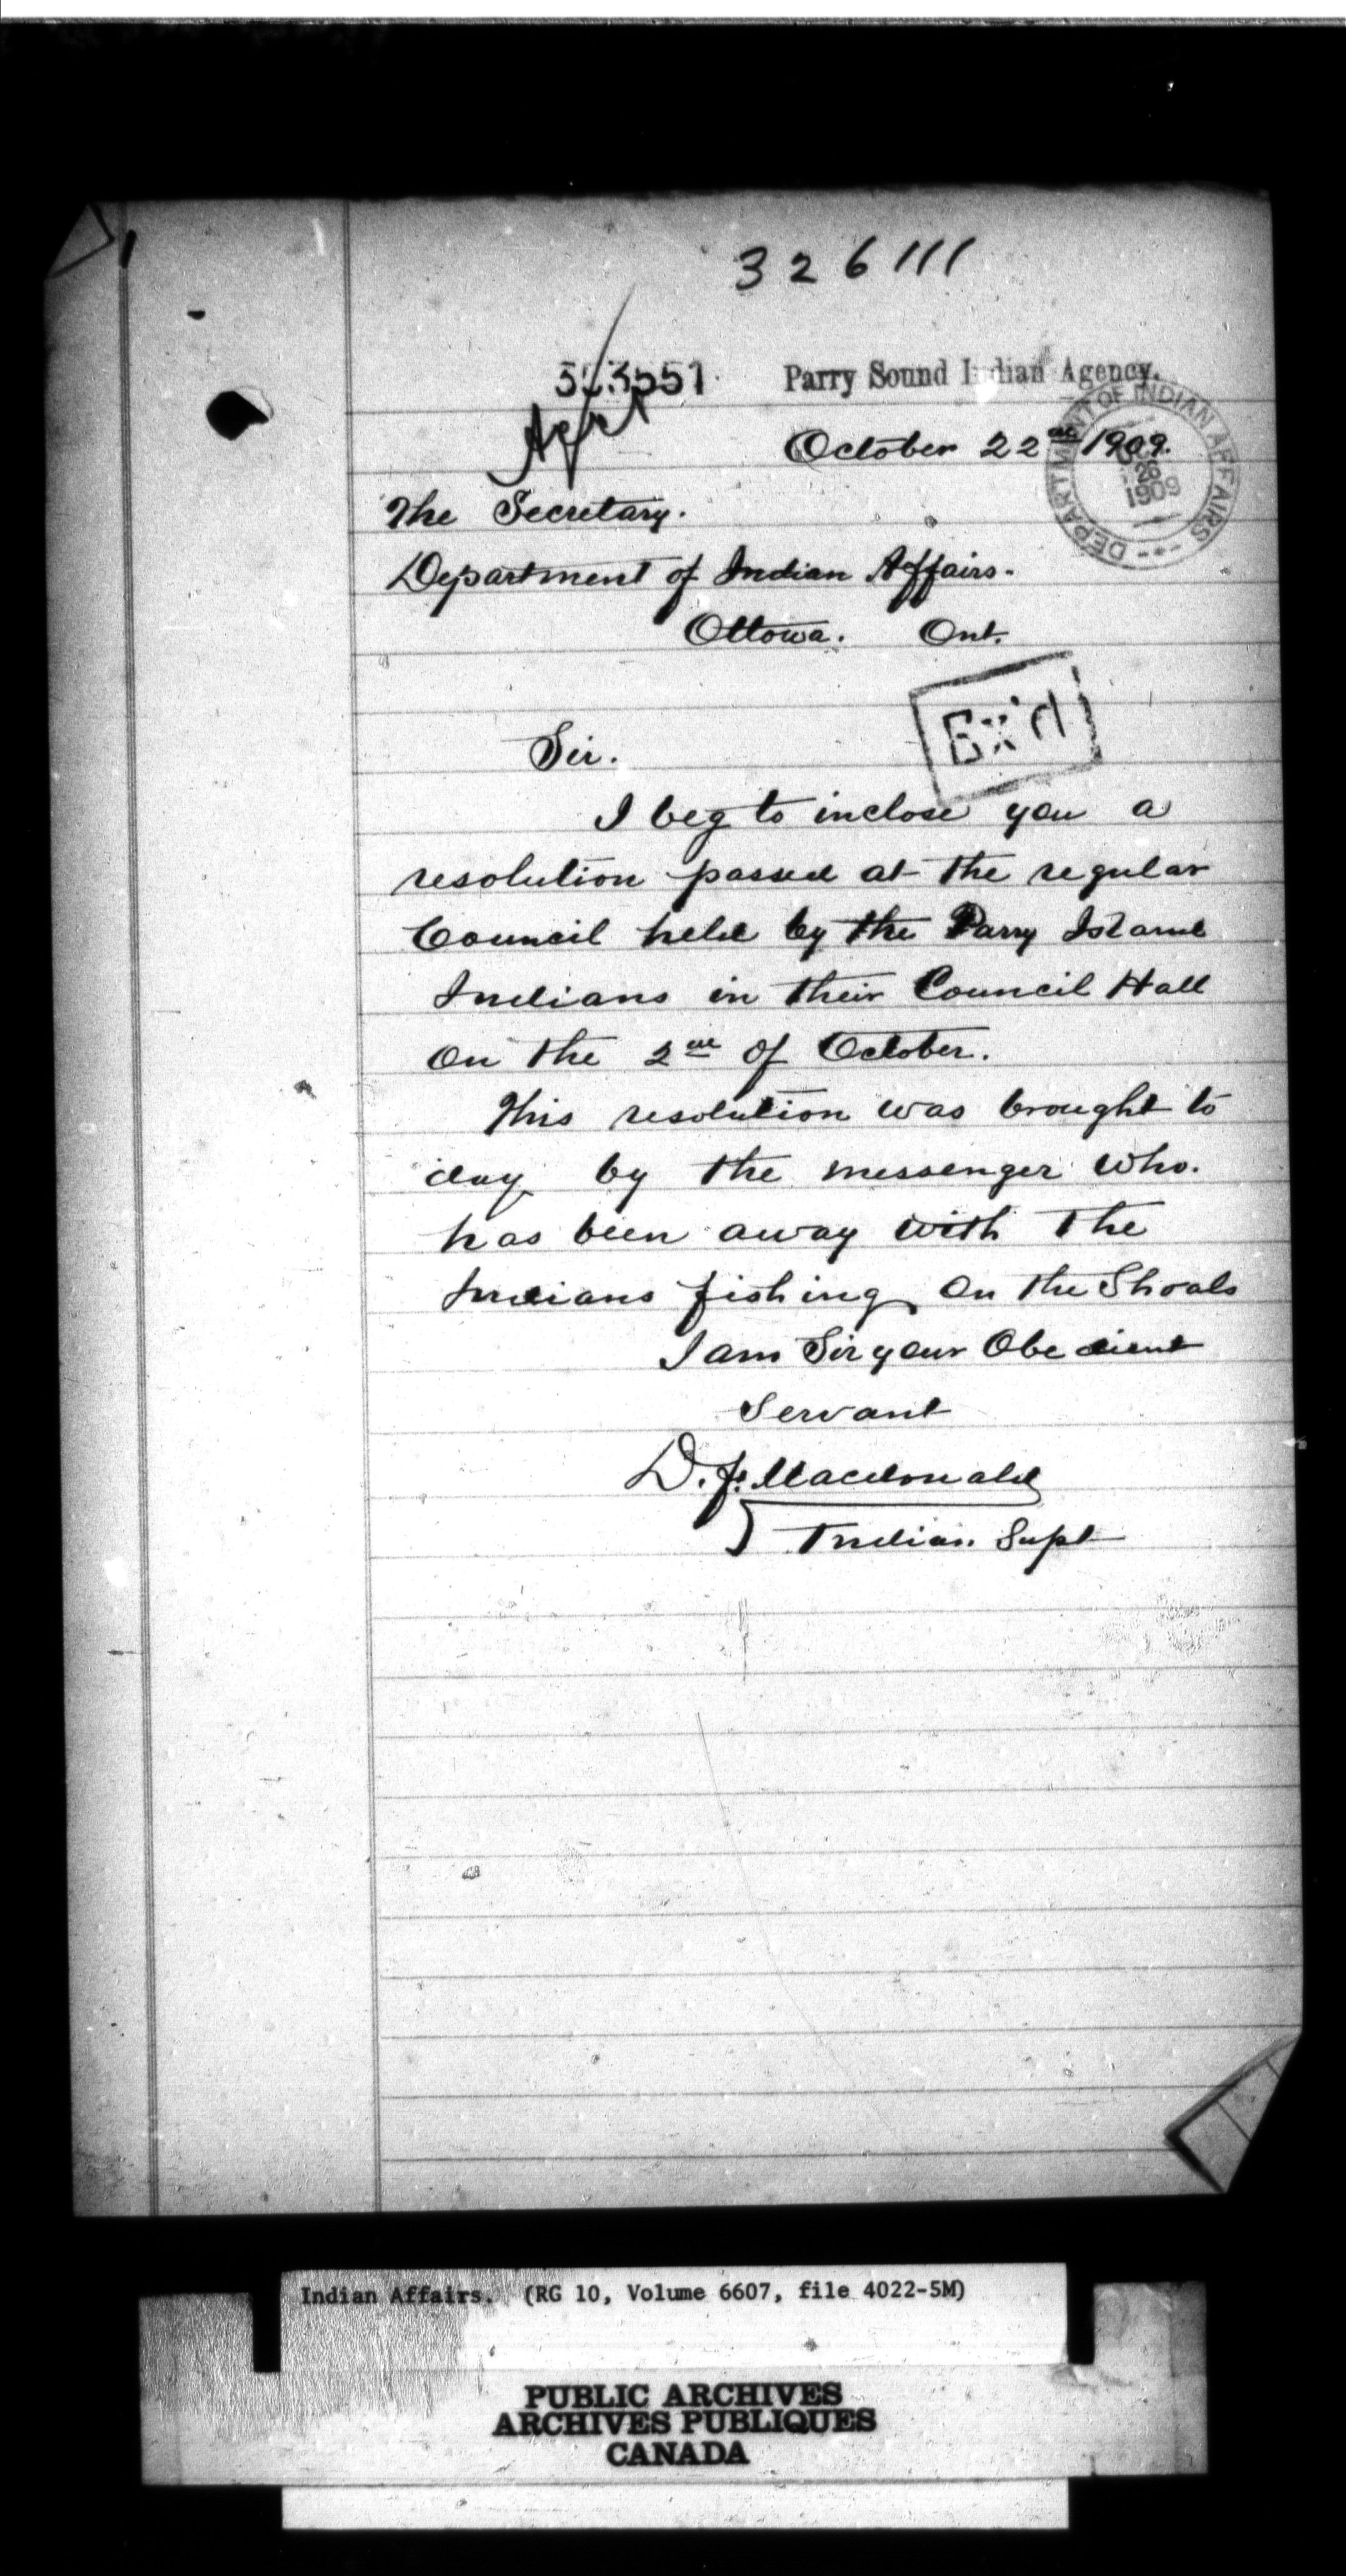 326111
Parry Sound Indian Agency.
October 22nd 1909.
DEPARTMENT OF INDIAN AFFAIRS
26
1909
The Secretary.
Department of Indian Affairs.
Ottowa. Ont.
Ex'd
Sir.
I beg to inclose you a
resolution passed at the regular
Council held by the Parry Island
Indians in their Council Hall
on the 2nd of October.
This resolution was brought to
day by the messenger who.
has been away with the
Indians fishing on the Shoals
I am Sir your Obedient
Servant
D. F. Macdonald
Indian Supt
Indian Affairs. (RG 10, Volume 6607, file 4022-5M)
PUBLIC ARCHIVES
ARCHIVES PUBLIQUES
CANADA